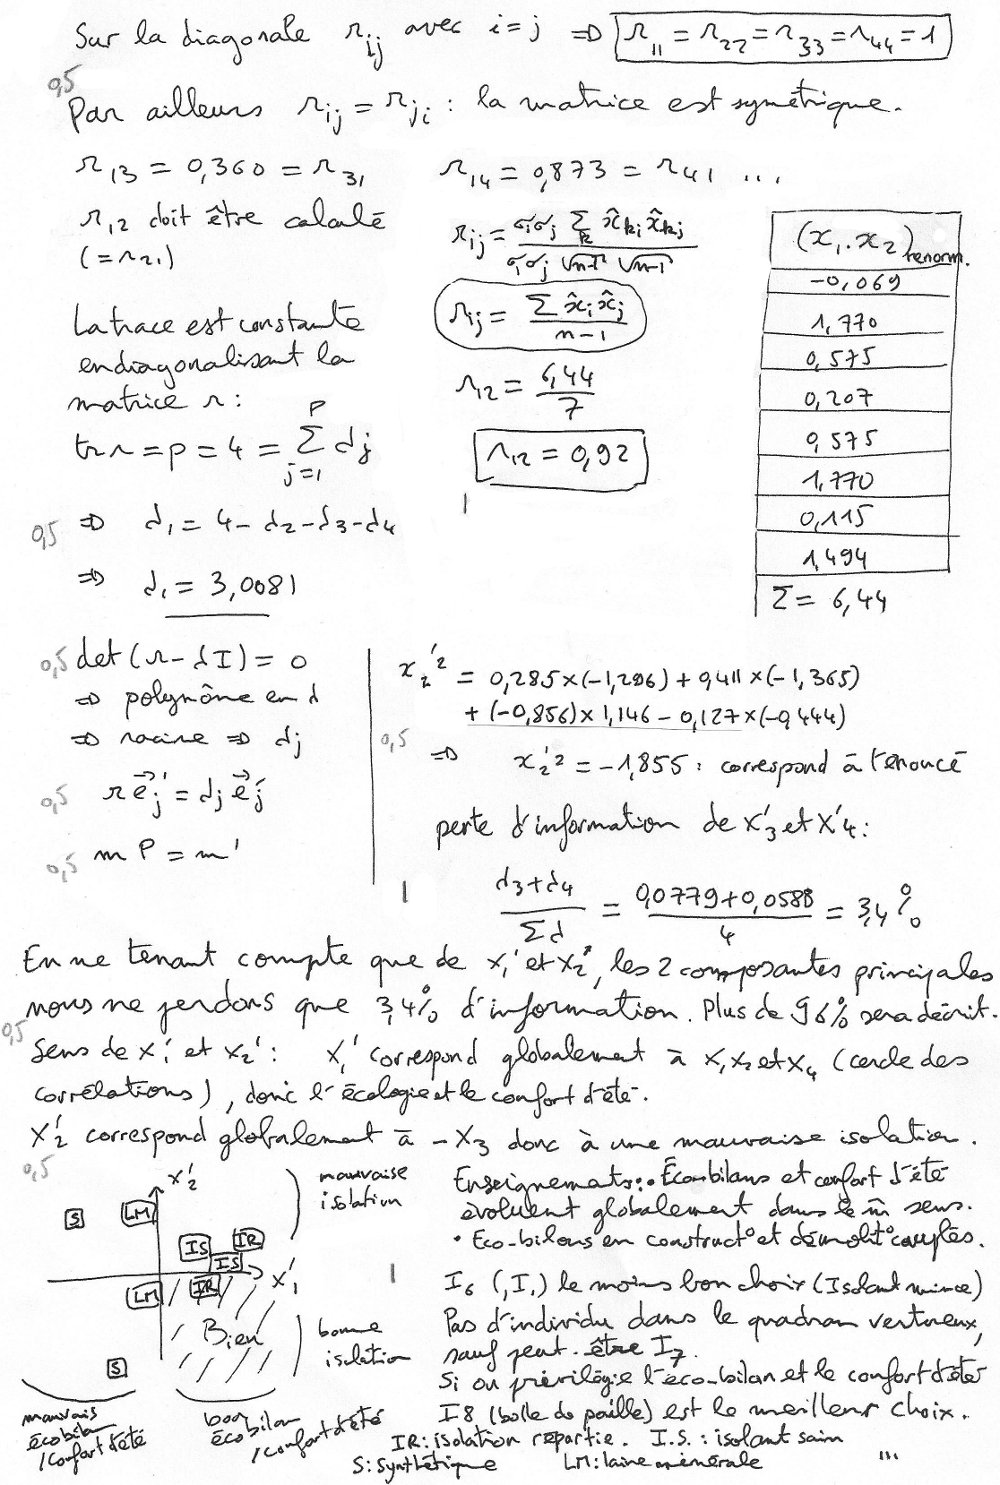 Sur la diagonale r_ij avec i=j ⇒ r_11 = r_22 = r_33 = r_44 = 1
0,5
Par ailleurs r_ij = r_ji : la matrice est symétrique.
r_13 = 0,360 = r_31
r_14 = 0,873 = r_41 ...
r_12 doit être calculé
(= r_21)
r_ij = σ_i σ_j Σ_k x̂_ki x̂_kj / σ_i σ_j √n-1 √n-1
r_ij = Σ x̂_i x̂_j / n-1
r_12 = 6,44 / 7
r_12 = 0,92
1
(x_1 . x_2)_renorm.
-0,069
1,770
0,575
0,207
0,575
1,770
0,115
1,494
Σ = 6,44
La trace est constante
en diagonalisant la
matrice r :
tr r = p = 4 = Σ_{j=1}^{p} λ_j
0,5 ⇒ λ_1 = 4 - λ_2 - λ_3 - λ_4
⇒ λ_1 = 3,0081
0,5 det (r - λI) = 0
⇒ polynôme en λ
⇒ racine ⇒ λ_j
0,5 r e⃗'_j = λ_j e⃗'_j
0,5 m P = m'
x'_2^2 = 0,285×(-1,296) + 0,411×(-1,365)
+ (-0,856)×1,146 - 0,127×(-0,444)
0,5 ⇒ x'_2^2 = -1,855 : correspond à l'énoncé
perte d'information de X'_3 et X'_4 :
1
λ_3 + λ_4 / Σλ = 0,0779 + 0,0588 / 4 = 3,4 %
En ne tenant compte que de x_1' et x_2', les 2 composantes principales
nous ne perdons que 3,4% d'information. Plus de 96% sera décrit.
0,5
Sens de x_1' et x_2' : X_1' correspond globalement à X_1 X_2 et X_4 (cercle des
corrélations), donc l'écologie et le confort d'été.
X'_2 correspond globalement à -X_3 donc à une mauvaise isolation.
0,5
X'_2
mauvaise
isolation
S
LM
IS
IR
IS
X'_1
LM
IR
Bien
bonne
isolation
S
mauvais
écobilan
/confort d'été
bon
écobilan
/confort d'été
Enseignements : • Éco-bilans et confort d'été
évoluent globalement dans le m̂ sens.
• Eco-bilans en construct° et démolit° couplés.
1
I_6 (, I_1) le moins bon choix (Isolant mince)
Pas d'individu dans le quadran vertueux,
sauf peut-être I_7.
Si on privilégie l'éco-bilan et le confort d'été
I8 (botte de paille) est le meilleur choix.
IR : isolation répartie. I.S. : isolant sain
S : Synthétique LM : laine minérale ...